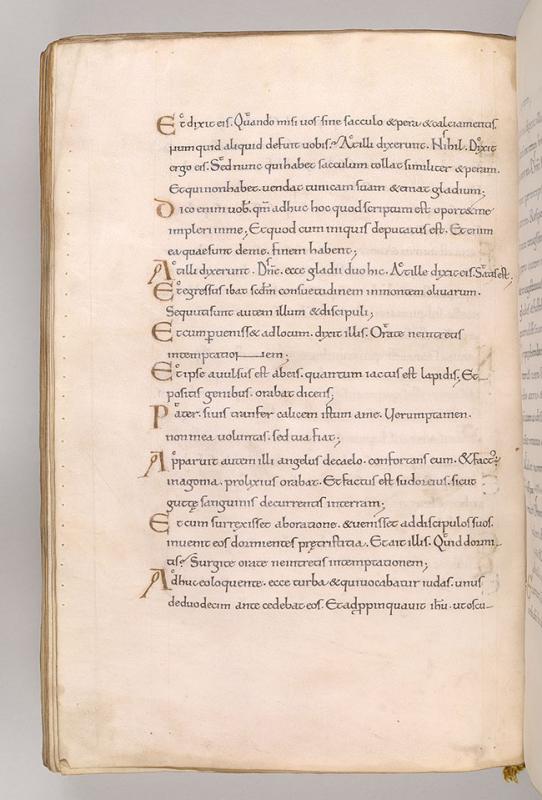 Et dixit eis. Quando misi uos sine sacculo & pera & calciamentis.
numquid aliquid defuit uobis? At illi dixerunt. Nihil. Dixit
ergo eis. Sed nunc qui habet sacculum tollat similiter & peram.
Et qui non habet. uendat tunicam suam & emat gladium;
Dico enim uob. qm adhuc hoc quod scriptum est oport& me
impleri in me; Et quod cum iniquis deputatus est. Et enim
ea quae sunt de me. finem habent;
At illi dixerunt. Dne. ecce gladii duo hic. At ille dixit eis. Satis est;
Et egressus ibat scdm consuetudinem in montem oliuarum.
Secuti sunt autem illum & discipuli;
Et cum peruenisset ad locum. dixit illis. Orate ne intretis
in temptationem;
Et ipse auulsus est ab eis. quantum iactus est lapidis; Et
positis genibus. orabat dicens;
Pater. si uis transfer calicem istum a me. Uerumptamen.
non mea uoluntas. sed tua fiat;
Apparuit autem illi angelus de caelo. confortans eum. & fact;
in agonia. prolixius orabat. Et factus est sudor eius. sicut
guttę sanguinis decurrentis in terram;
Et cum surrexisset ab oratione. & uenisset ad discipulos suos.
inuenit eos dormientes prę tristitia. Et ait illis. Quid dormi
tis? Surgite orate ne intretis in temptationem;
Adhuc eo loquente. ecce turba & qui uocabatur iudas. unus
de duodecim antecedebat eos. Et adpropinquauit ihu. ut oscu-